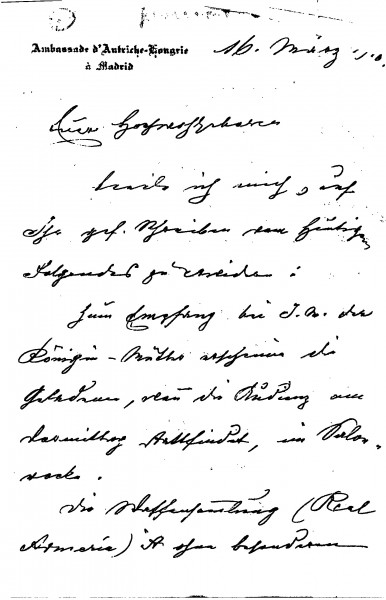 Ambassade d'Autriche-Hongrie
à Madrid
16. März
Euer Hochwohlgeboren
beeile ich mich, auf
Ihr gef. Schreiben vom heutigen
Folgendes zu erwidern:
Zum Empfang bei I. M. der
Königin-Mutter erscheinen die
Geladenen, wenn die Audienz am
Vormittag stattfindet, im Salon-
rock.
Die Waffensammlung (Real
Armeria) ist ohne besonderen